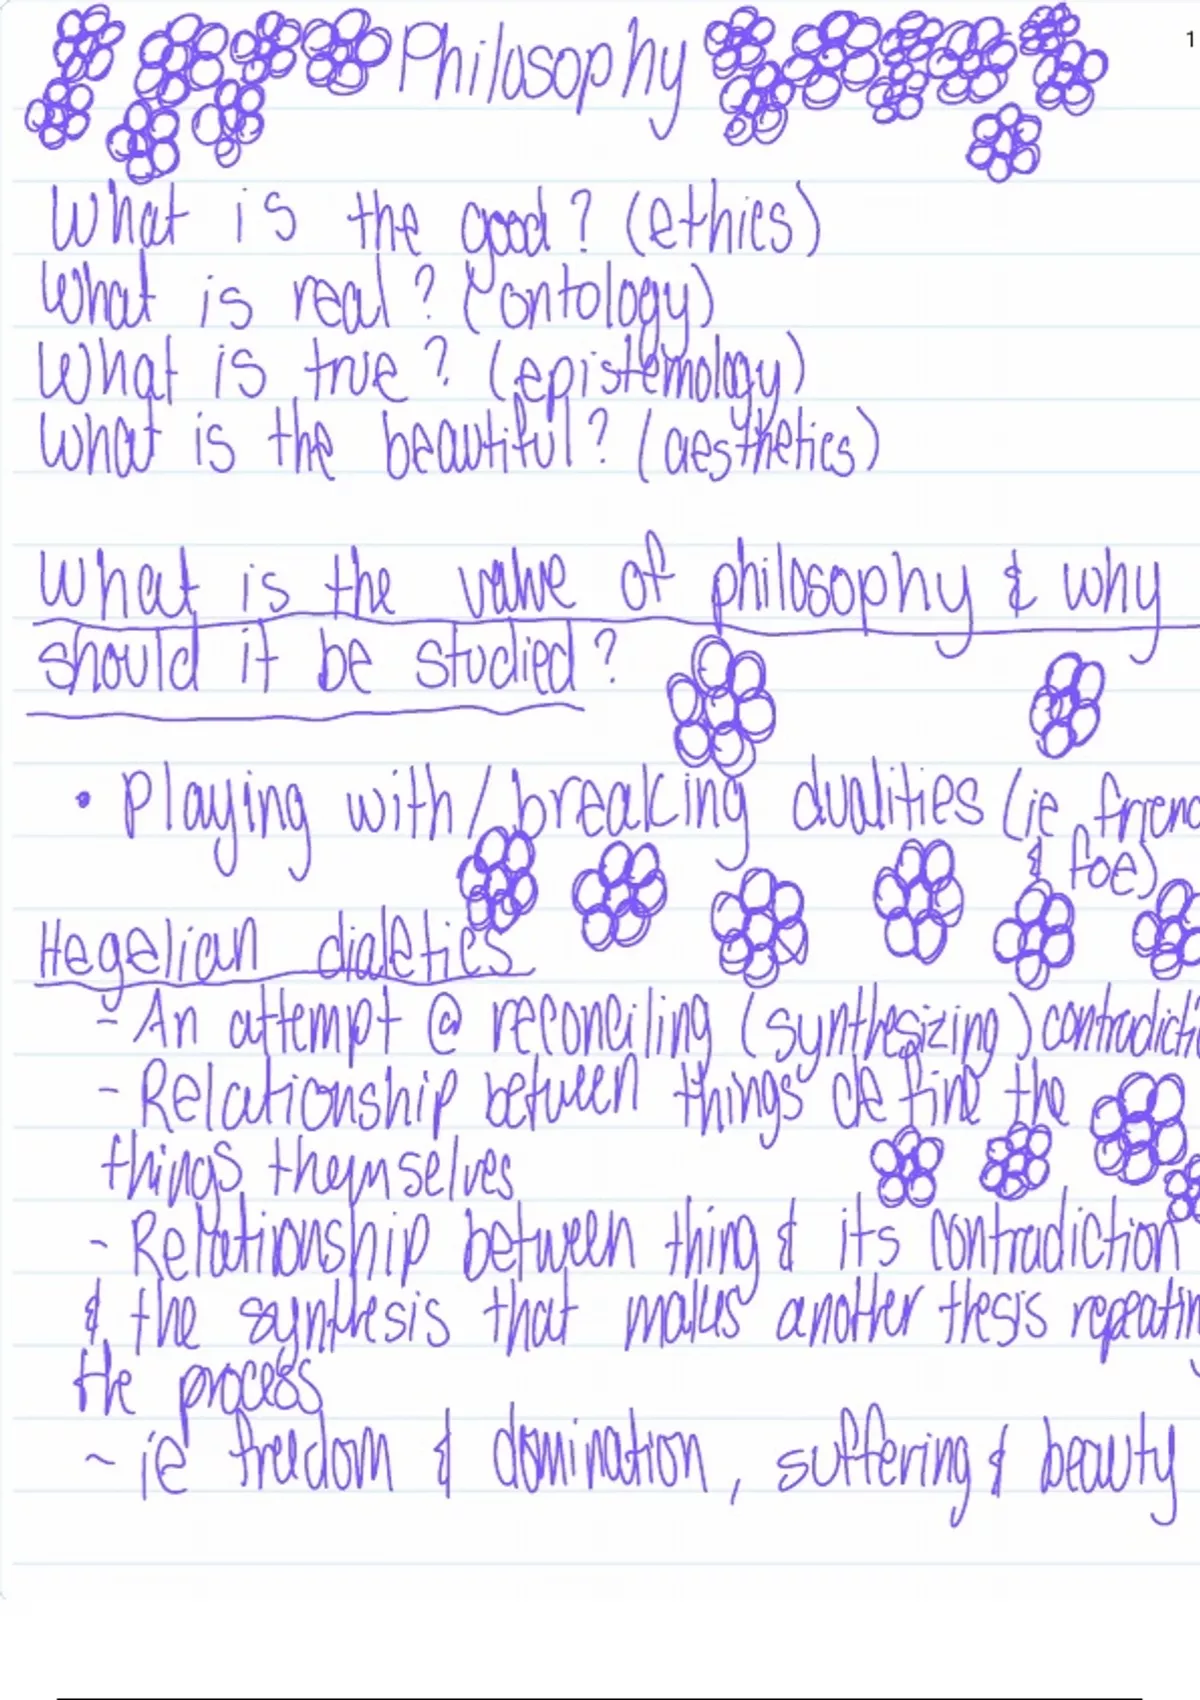 Philosophy
1
What is the good? (ethics)
What is real? (ontology)
What is true? (epistemology)
What is the beautiful? (aesthetics)
What is the value of philosophy & why
should it be studied?
• Playing with/breaking dualities (ie friend
& foe)
Hegelian dialetics
- An attempt @ reconciling (synthesizing) contradicti
- Relationship between things define the
things themselves
- Relationship between thing & its contradiction
& the synthesis that makes another thesis repeatin
the process
- ie freedom & domination, suffering & beauty